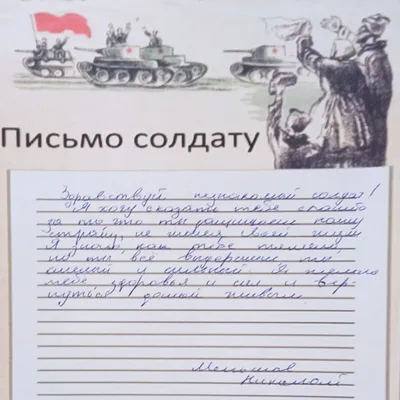 Письмо солдату
Здравствуй, незнакомый солдат!
Я хочу сказать тебе спасибо
за то что ты защищаешь нашу
страну, не жалея своей жизни
Я знаю, как тебе тяжело,
но ты всё выдержишь ты
смелый и сильный. Я желаю
тебе здоровья и сил и вер-
нуться домой живым.
Николай